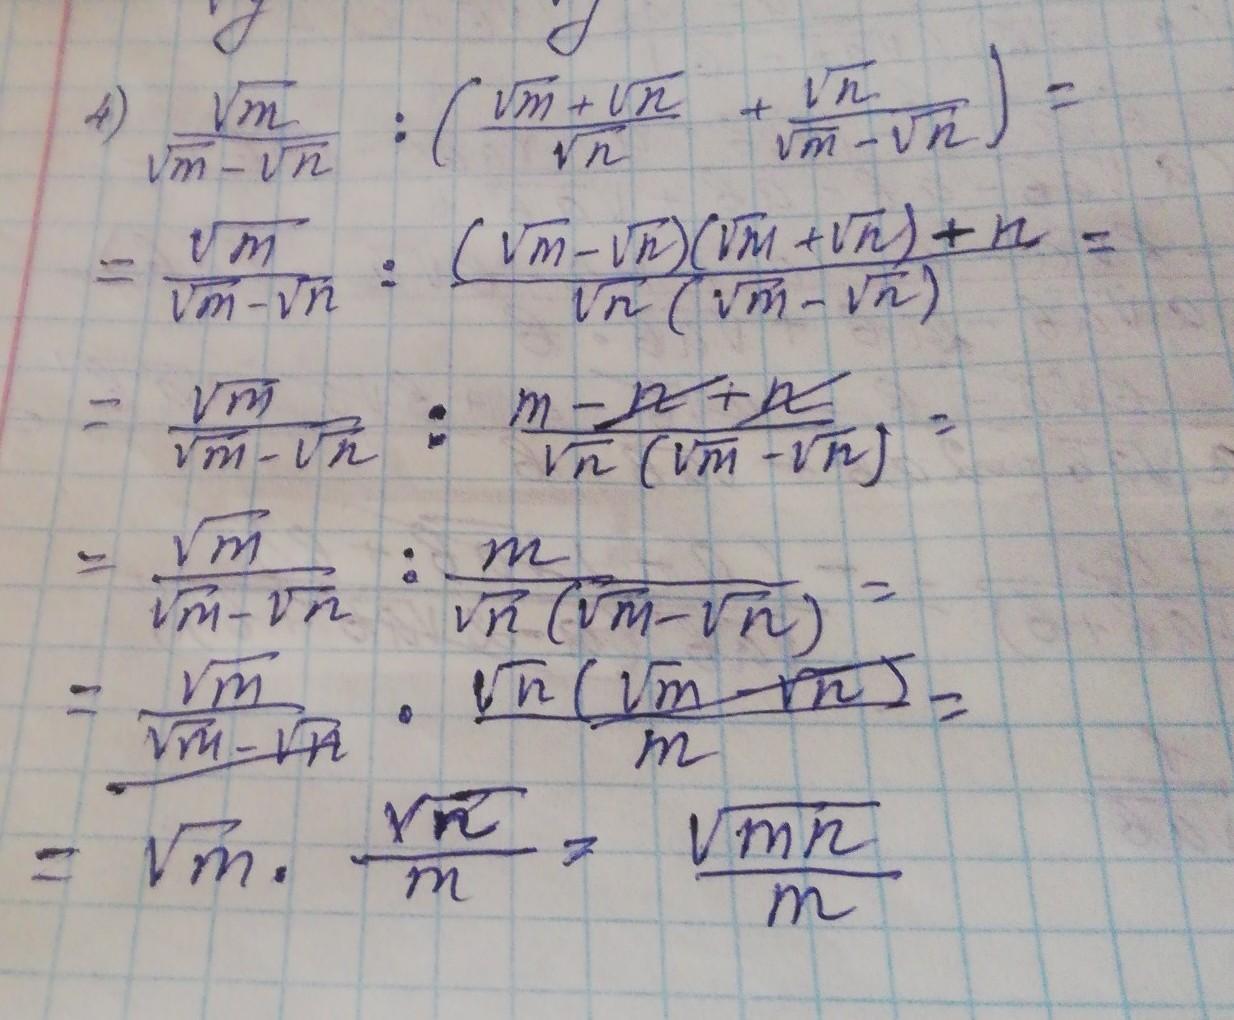 4) √m/(√m-√n) : ((√m+√n)/√n + √n/(√m-√n)) =
= √m/(√m-√n) : ((√m-√n)(√m+√n)+n)/(√n(√m-√n)) =
= √m/(√m-√n) : (m-n+n)/(√n(√m-√n)) =
= √m/(√m-√n) : m/(√n(√m-√n)) =
= √m/(√m-√n) · √n(√m-√n)/m =
= √m · √n/m = √mn/m